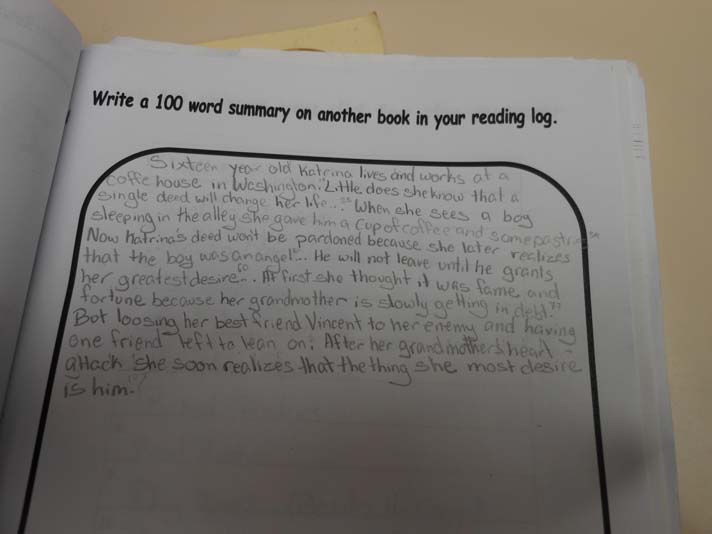 Write a 100 word summary on another book in your reading log.
Sixteen year old Katrina lives and works at a
coffe house in Washington. Little does she know that a
single deed will change her life... When she sees a boy
sleeping in the alley she gave him a cup of coffee and some
Now Katrina's deed won't be pardoned because she later realizes
that the boy was an angel... He will not leave until he grants
her greatest desire... At first she thought it was fame and
fortune because her grandmother is slowly getting in debt.
But loosing her best friend Vincent to her enemy and having
one friend left to lean on. After her grandmother's heart -
attack she soon realizes that the thing she most desire
is him.